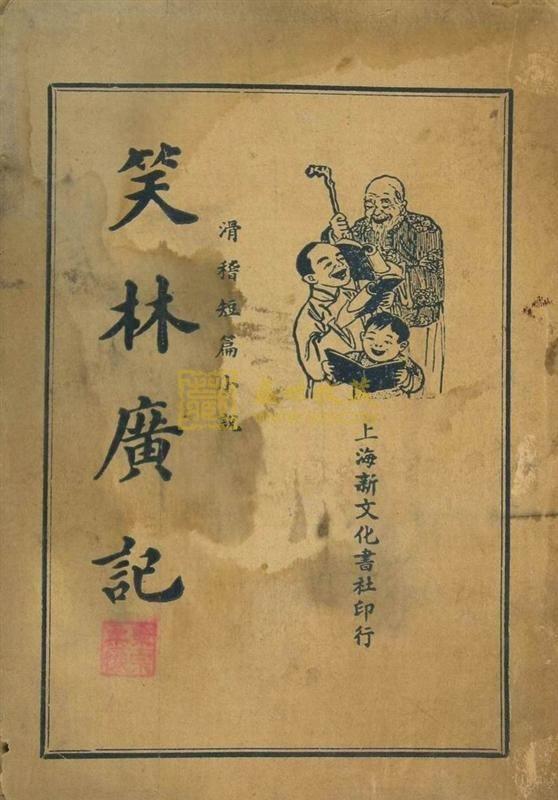 笑林廣記
滑稽短篇小說
上海新文化書社印行